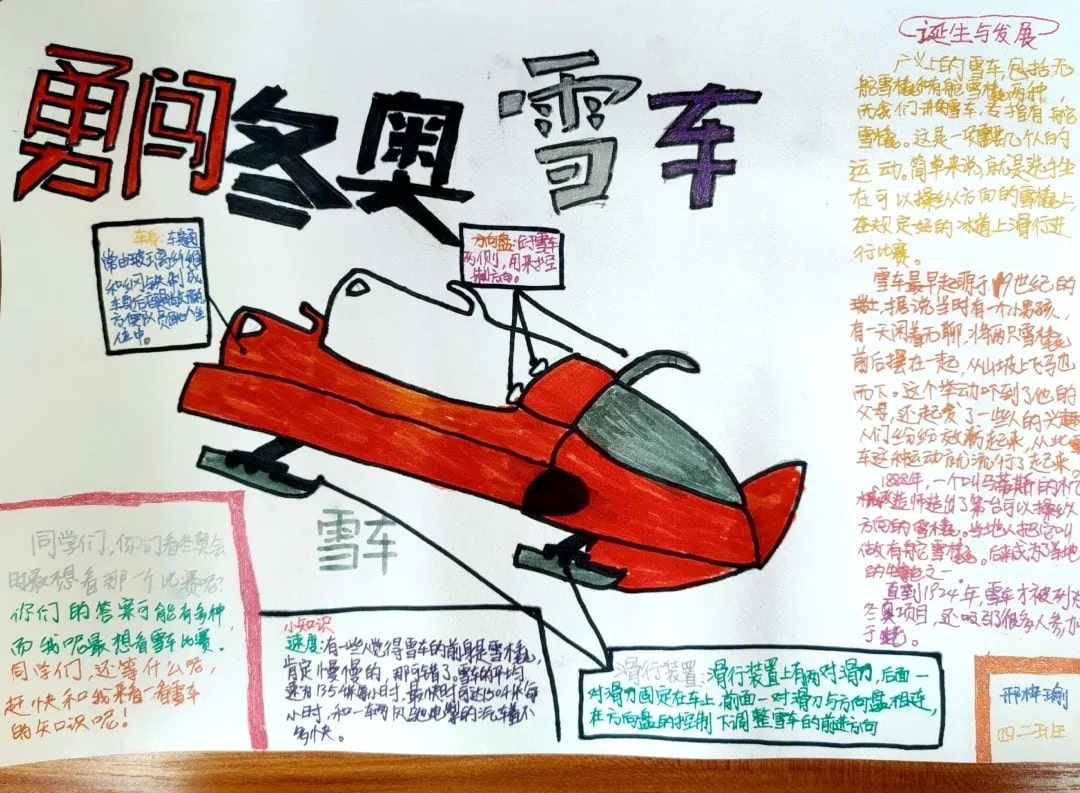 勇闯冬奥雪车
诞生与发展
广义上的雪车,包括无
舵雪橇和有舵雪橇两种,
而我们讲的雪车,专指有舵
雪橇。这是一项几个人的
运动。简单来说,就是选手坐
在可以操纵方向的雪橇上,
在规定好的冰道上滑行进
行比赛。
雪车最早起源于19世纪的
瑞士,据说当时有一个小男孩,
有一天闲着无聊,将两只雪橇
前后摆在一起,从山坡上飞驰
而下。这个举动吓到了他的
父母,还起发了一些人的兴趣,
人们纷纷效仿起来,从此雪
车这种运动就流行了起来
1888年,一个叫马蒂斯的机
械造师造出了第台可以操纵
方向的雪橇。当地人把它叫
做有舵雪橇。后来成为了当地
的特色之一
直到1924年,雪车才被列为
冬奥项目,还吸引了很多人参加
车身:车身通
常由玻璃纤维
和钢铁制成
方便队员坐
位中。
方向盘:位于雪车
两侧,用来控
制方向。
雪车
同学们,你们看冬奥会
时最想看那一个比赛呢?
你们的答案可能有多种,
而我呢最想看雪车比赛.
同学们,还等什么呢,
赶快和我来看一看雪车
的知识呢!
小知识
速度:有一些人觉得雪车的前身是雪橇,
肯定慢慢的,那可错了。雪车的平均
速度135千米每小时,最快时可达150千米每
小时,和一辆风驰电掣的汽车差不
多快。
滑行装置:滑行装置上有两对滑刀,后面一
对滑刀固定在车上,前面一对滑刀与方向盘相连,
在方向盘的控制下调整雪车的前进方向
邢梓瑜
四二班